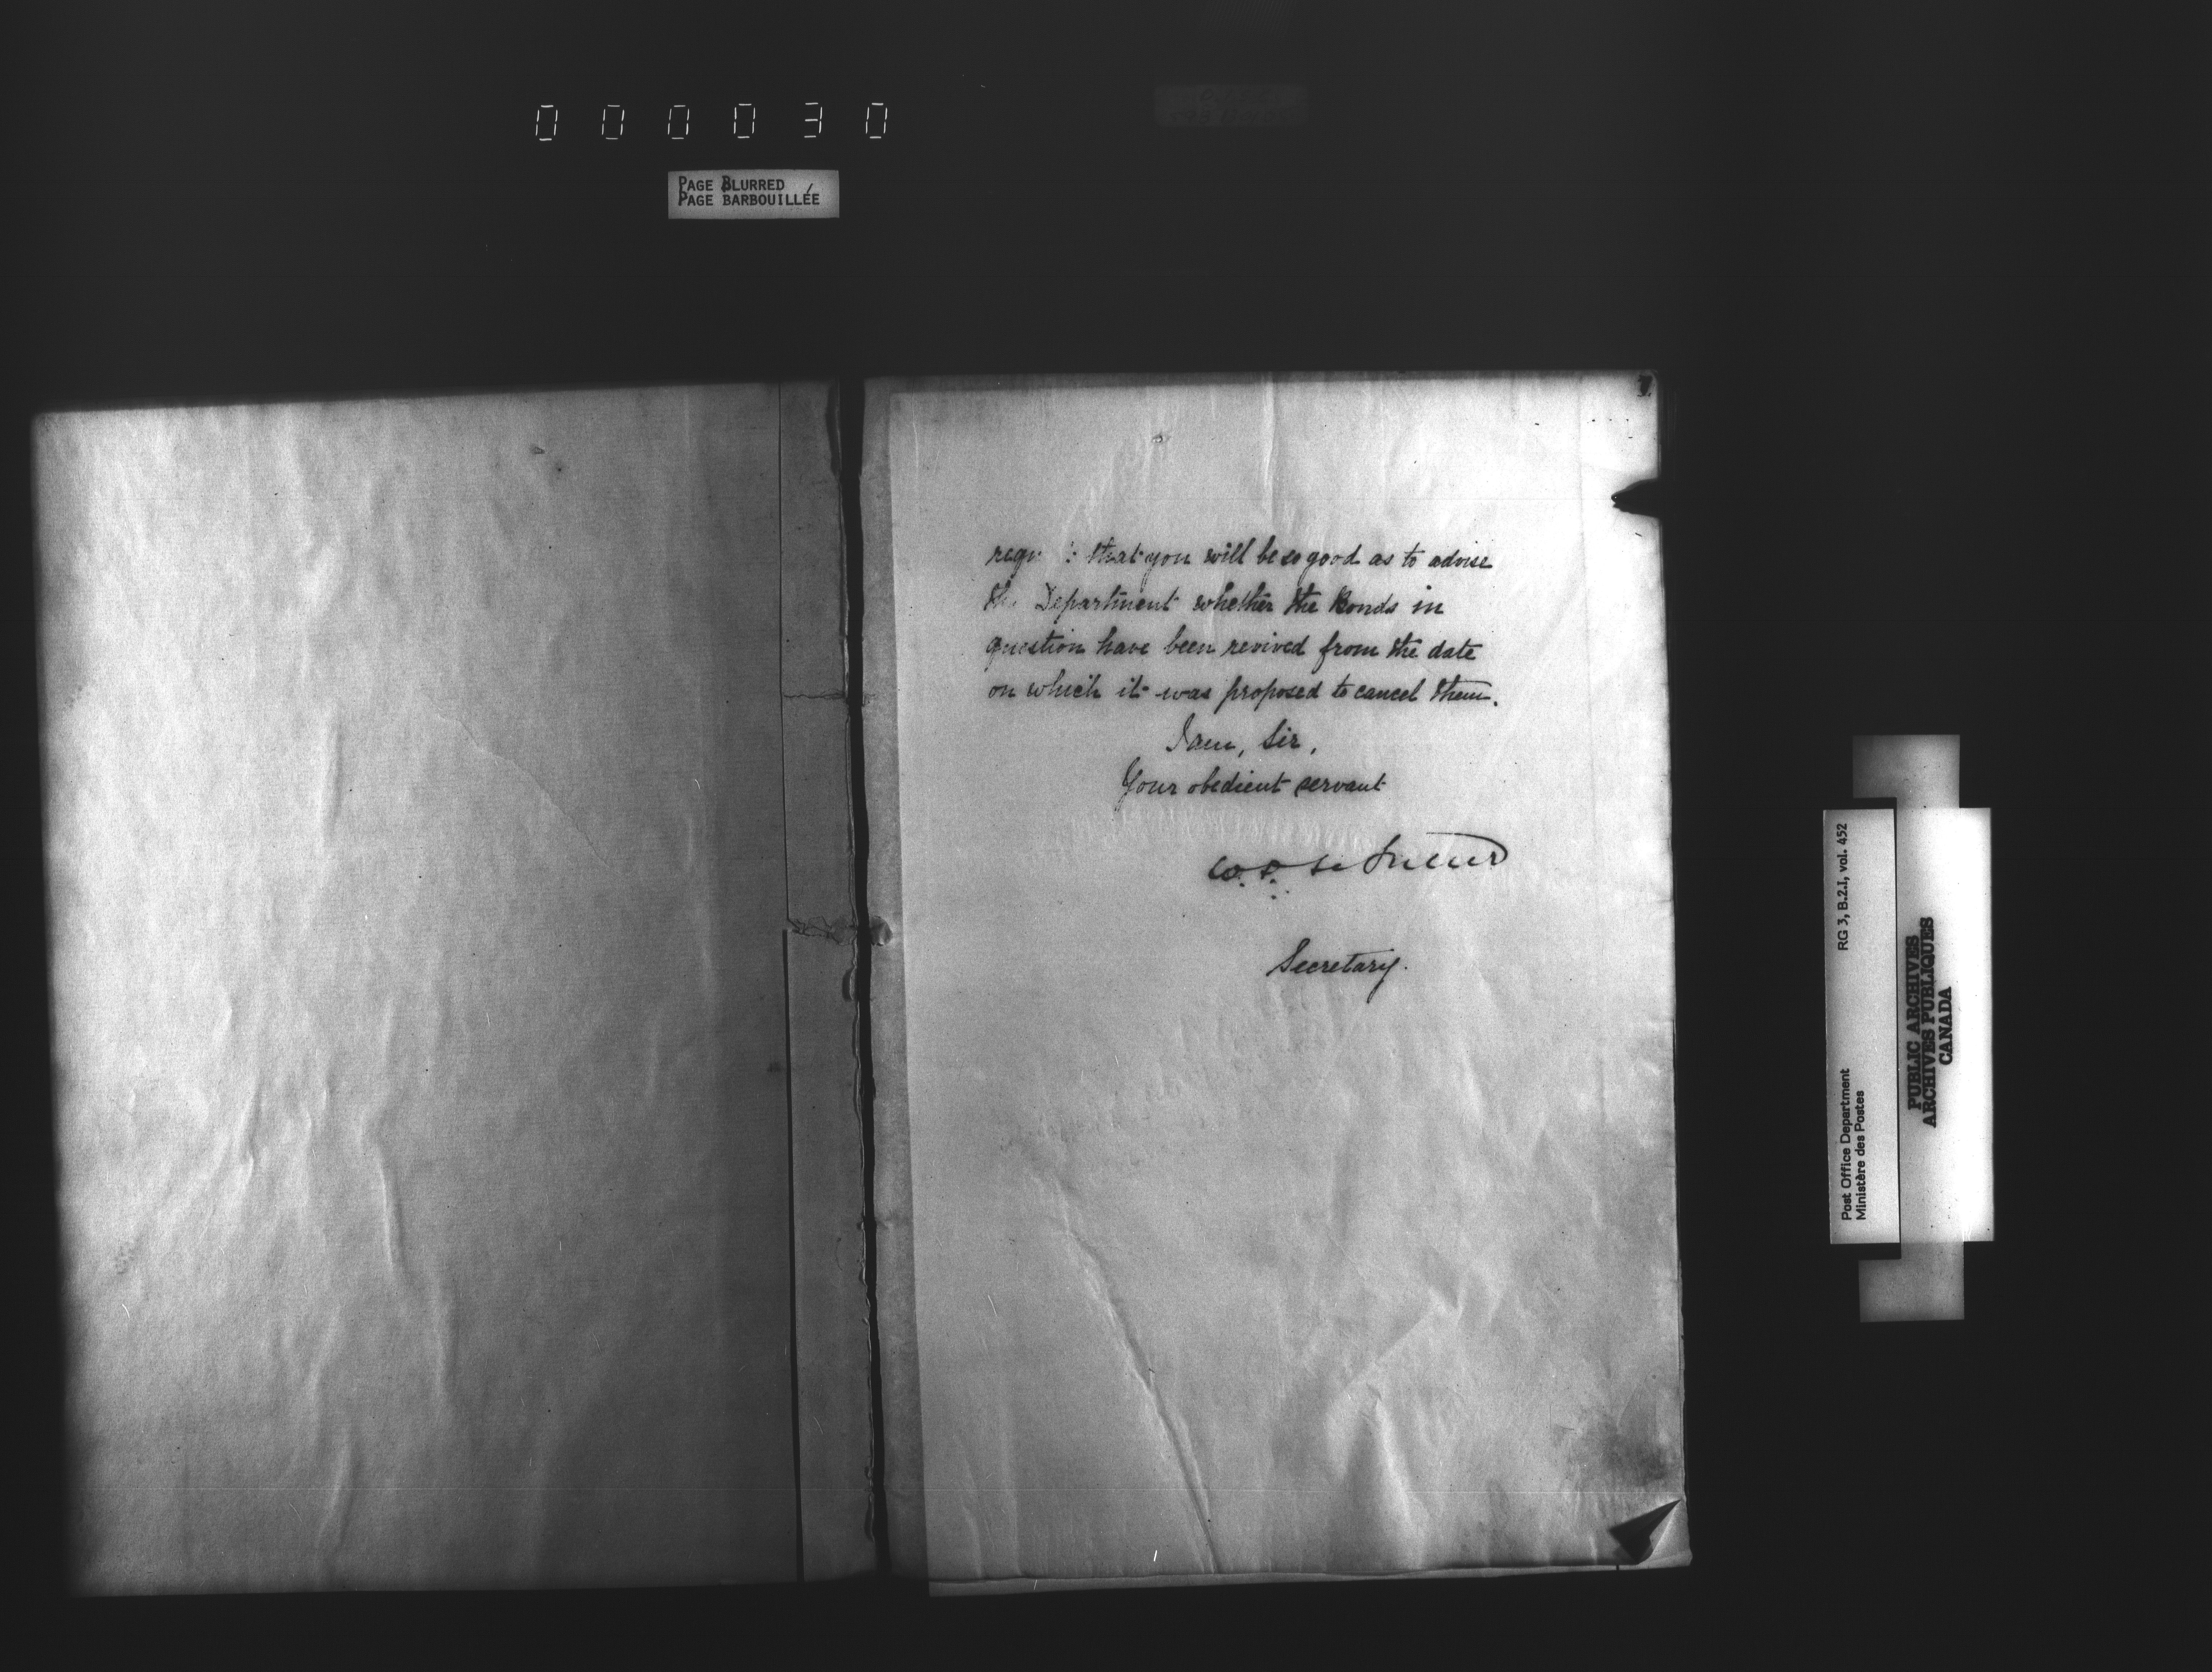 000030
PAGE BLURRED
PAGE BARBOUILLÉE
that you will be so good as to advise
Department whether the Bonds in
question have been revived from the date
on which it was proposed to cancel them.
I am, Sir,
Your obedient servant
W. D. Le Sueur
Secretary.
Post Office Department RG 3, B.2.1, vol. 452
Ministère des Postes
PUBLIC ARCHIVES
ARCHIVES PUBLIQUES
CANADA